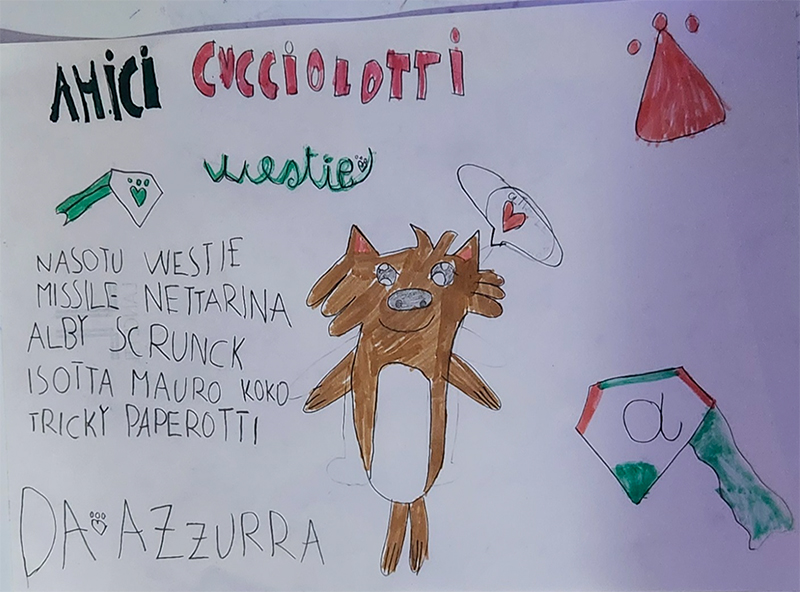 AMICI CUCCIOLOTTI
westie
NASOTU WESTIE
MISSILE NETTARINA
ALBY SCRUNCK
ISOTTA MAURO KOKO
TRICKY PAPEROTTI
a
DA AZZURRA